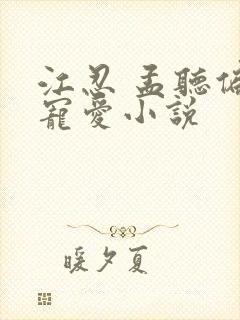 江忍 孟聽偏
寵愛小説
暖夕夏